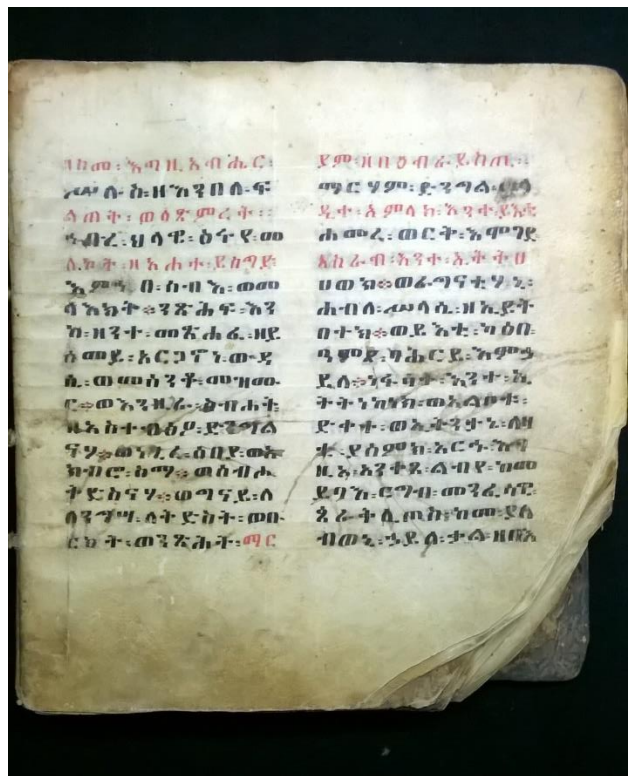 በስመ፡ እግዚአብሔር፡
ሥሉስ፡ ዘእንበለ፡ ፍ
ልጠት፡ ወዕፅምረት፡፡
ኅብረ፡ ህላዌ፡ ዕሩየ፡ መ
ለኮት፡ ዘአሐተ፡ ይሰግድ፡
እምኀበ፡ ሰብእ፡ ወመ
ላእክት፡ ንጽሕፍ፡ እን
ከ፡ ዘንተ፡ መጽሐፈ፡ ዘይ
ሰመይ፡ አርጋኖነ፡ ውዳ
ሴ፡ ወመሰንቆ፡ መዝሙ
ር፡ ወእንዚራ፡ ስብሐት፡
ዘእስተብፅዖ፡ ድንግል
ናሃ፡ ወነጊረ፡ ዕበየ፡ ወአ
ክብሮ፡ ስማ፡ ወሰብሖ
ቅድስናሃ፡ ወግናይ፡ ለ
ለንግሣ፡ ለቅድስት፡ ወቡ
ርክት፡ ወንጽሕት፡ ማር
ያም፡ ዘበዕብራይስጢ፡
ማርሃም፡ ድንግል፡ ወላ
ዲተ፡ አምላክ፡ እንተ፡ ይእቲ
ሐመረ፡ ወርቅ፡ እሞገደ
አከራብ፡ እንተ፡ ኢትት
ሀወክ፡ ወፊግናቲሃኒ፡
ሐብለ፡ ሥላሴ፡ ዘኢይት
በተክ፡ ወይእቲ፡ ካዕበ፡
ዓምደ፡ ባሕርይ፡ እምኃ
ይለ፡ ነፋሳት፡ እንተ፡ ኢ
ትትነከነክ፡ ወአልቦቱ፡
ድቀተ፡ ወኢትንታኔ፡ ለዘ
ቲ፡ ያሰምክ፡ አርኁ፡ እግ
ዚአ፡ አንቀጸ፡ ልብየ፡ ከመ
ይባእ፡ ርግብ፡ መንፈሳዊ፡
ጳራቅሊጦስ፡ ከመ፡ ያለ
ብወኒ፡ ኃይለ፡ ቃል፡ ዘበአ